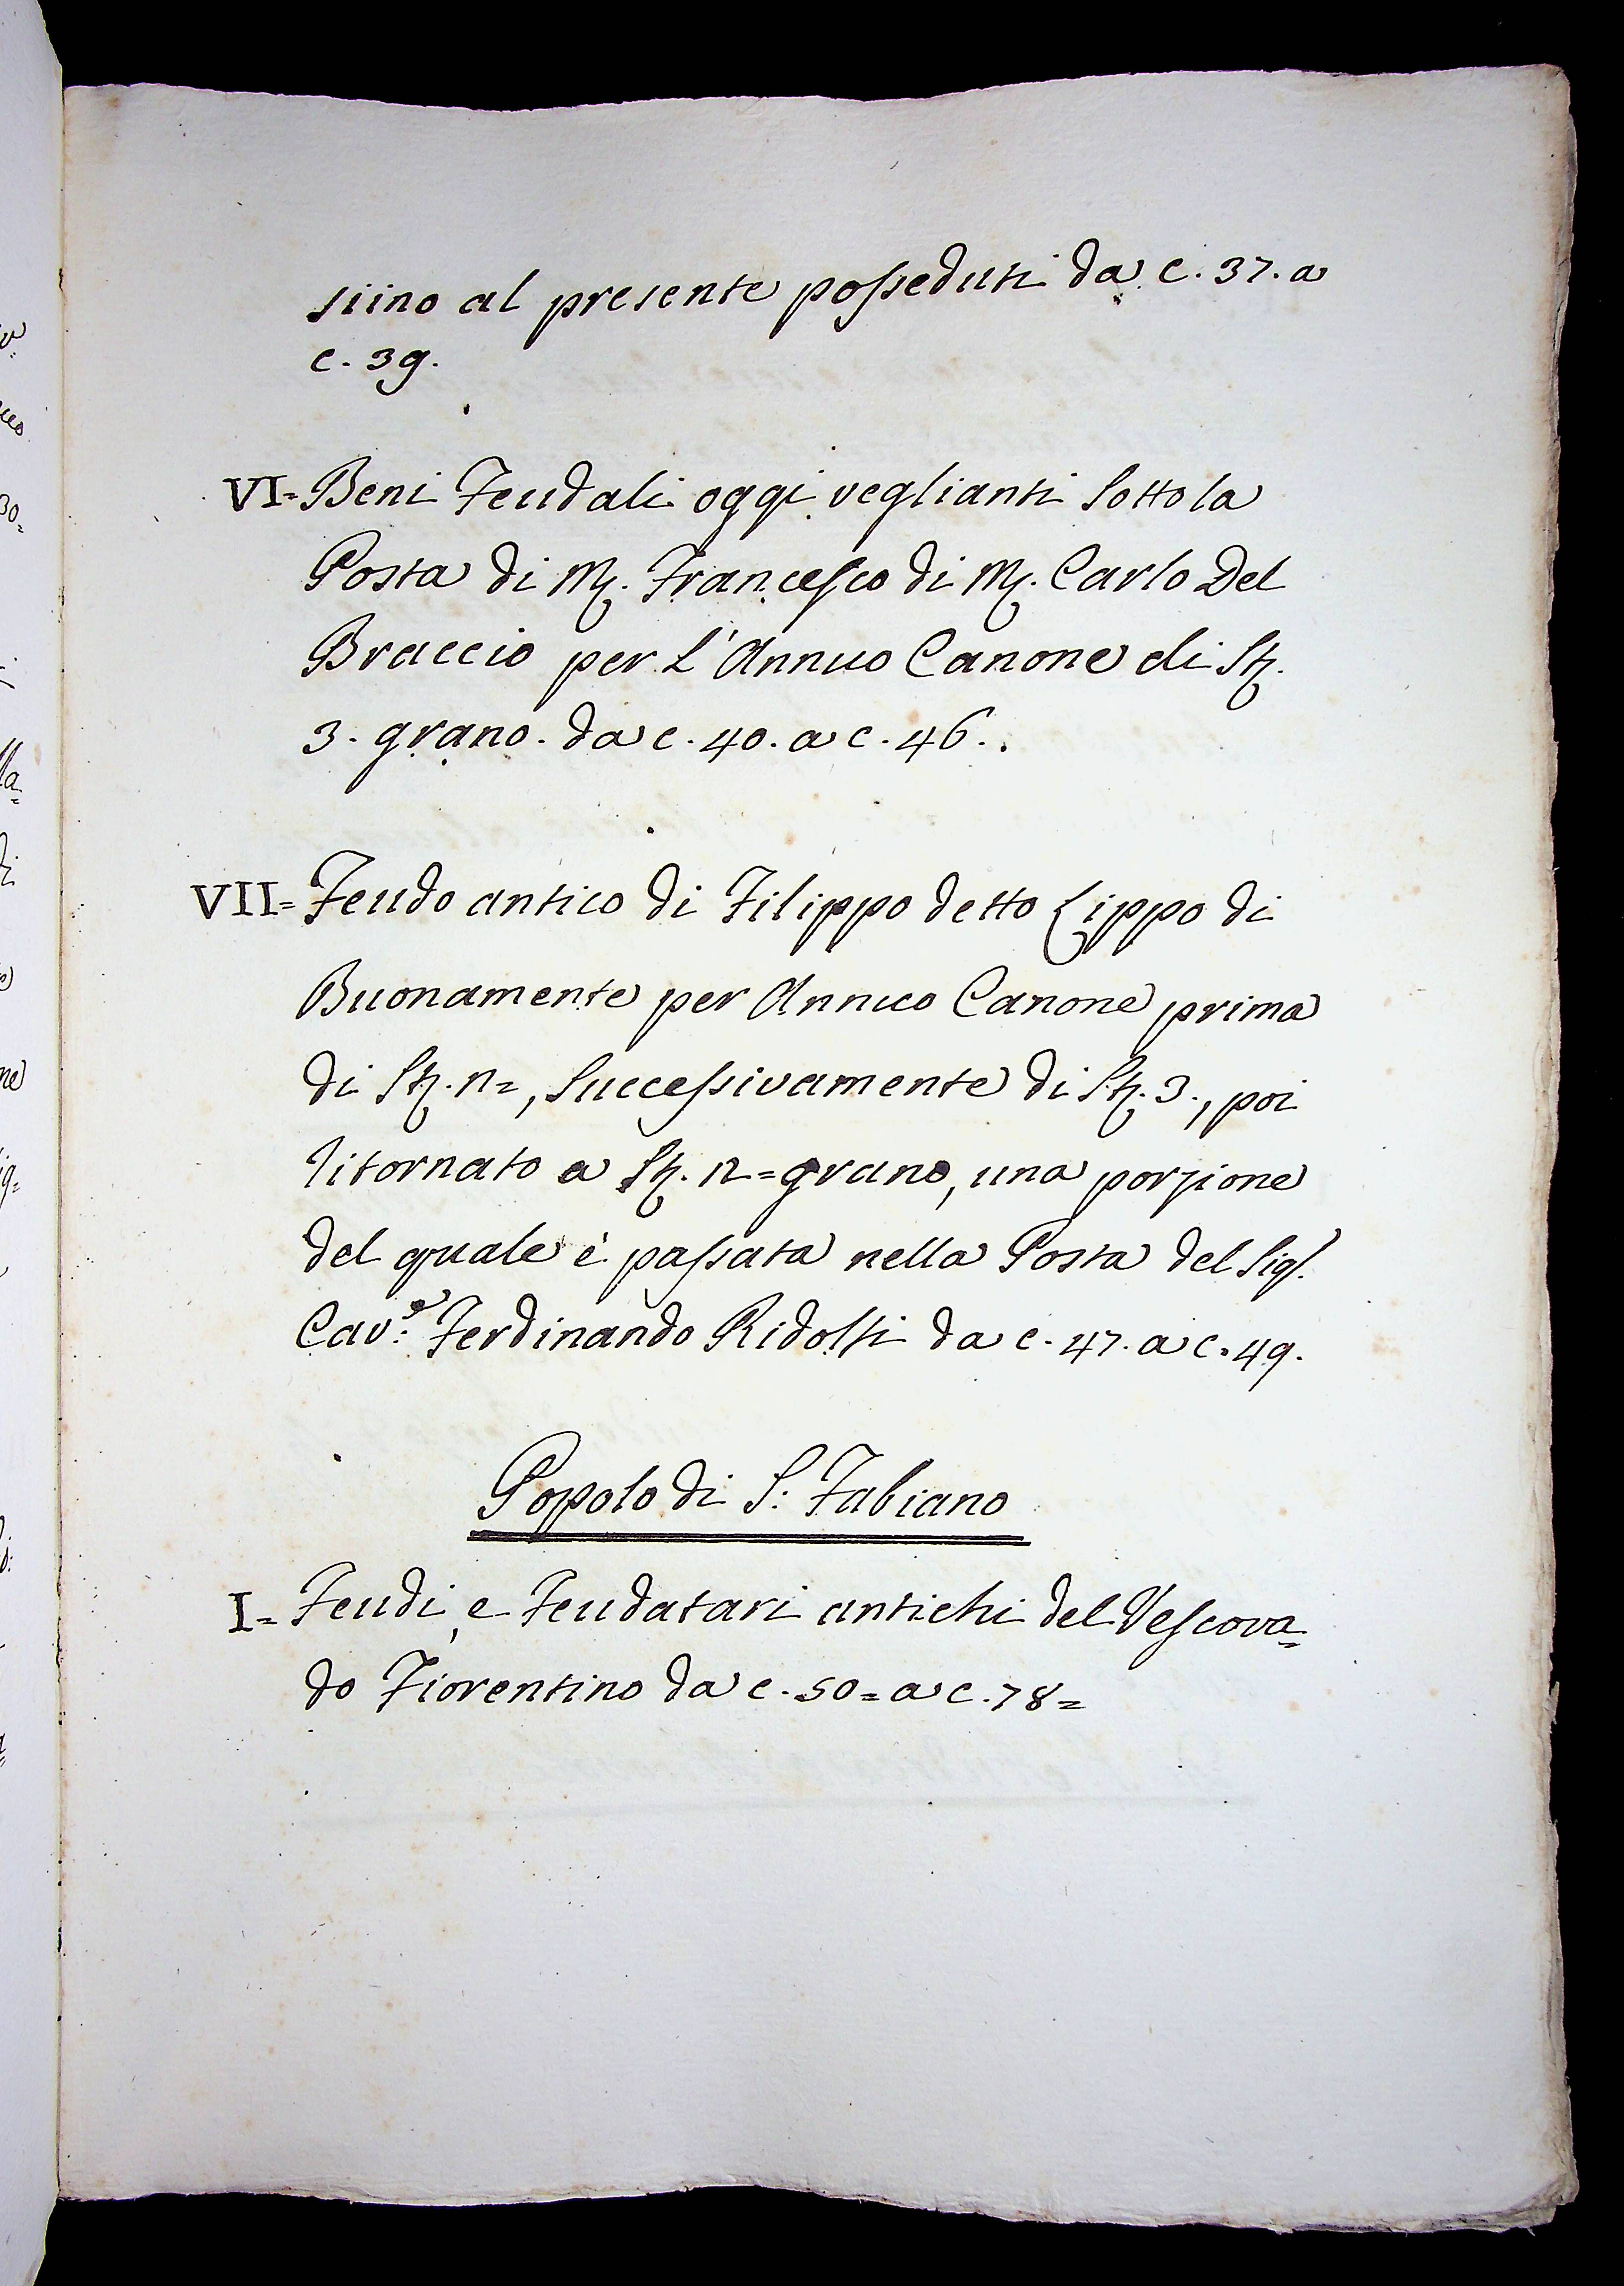 siino al presente posseduti da c. 37. a
c. 39.
VI= Beni Feudali oggi veglianti Sotto la
Posta di M. Francesco di M. Carlo Del
Braccio per L'Annuo Canone di St.
3. grano. da c. 40. a c. 46..
VII= Feudo antico di Filippo detto Lippo di
Buonamente per Annuo Canone prima
di St. n=, Successivamente di St. 3., poi
ritornato a St. n= grano, una porzione
del quale è passata nella Posta del Sigr.
Cav.e: Ferdinando Ridolfi da c. 47. a c. 49.
Popolo di S: Fabiano
I= Feudi, e Feudatari antichi del Vescova=
do Fiorentino da c. 50= a c. 78=